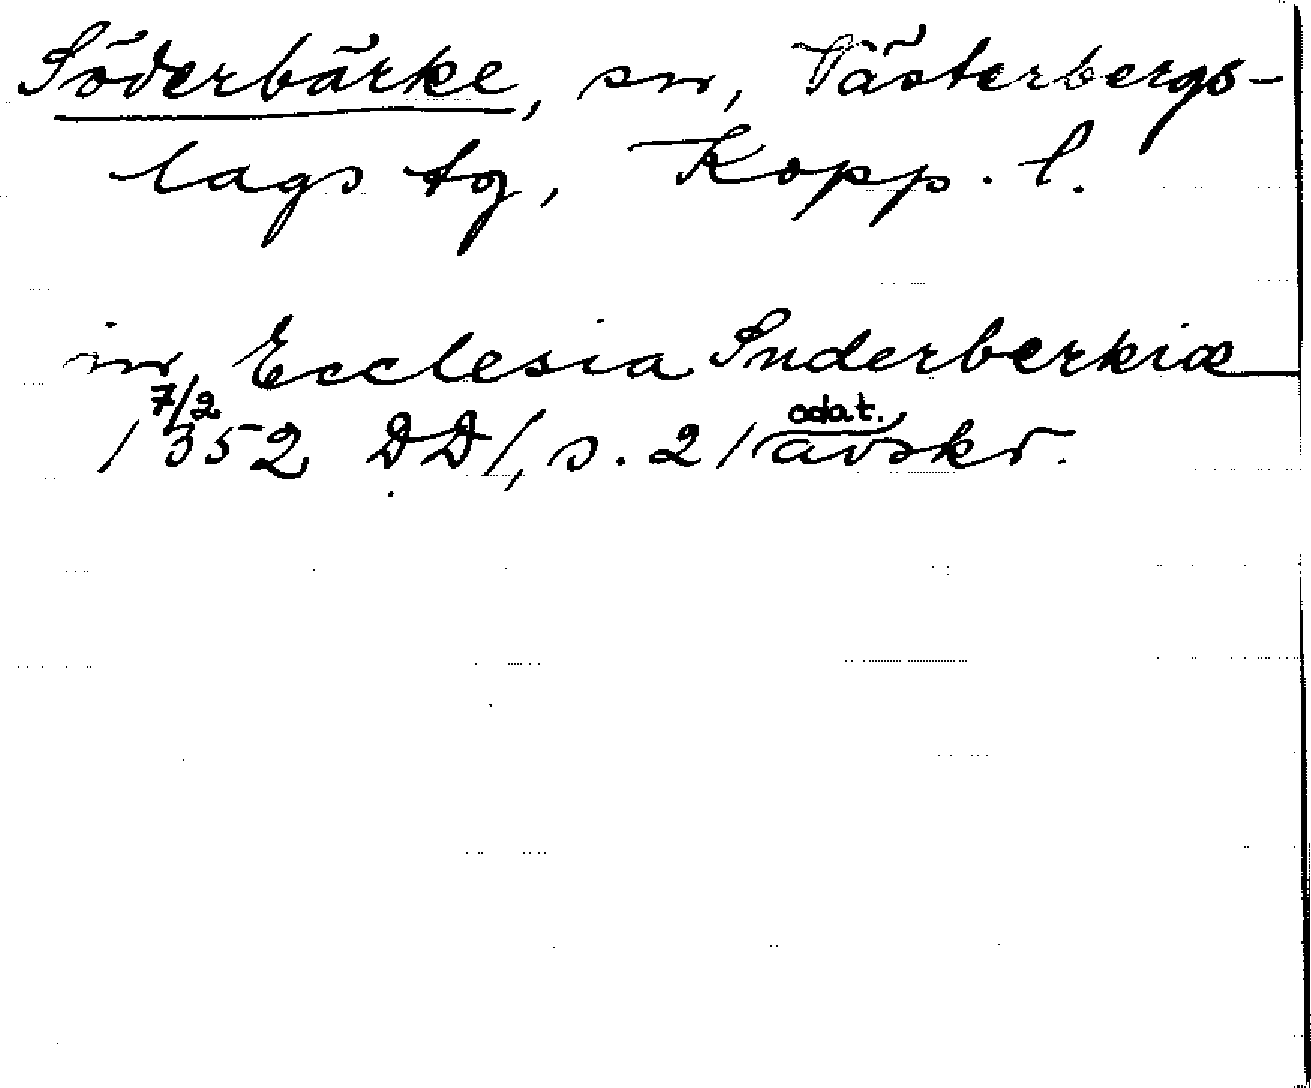 Söderbärke, sn, Västerbergs-
lags tg, Kopp. l.
in Ecclesia Suderberkiæ
7/2 1352 DD 1, s. 21 odat. avskr.